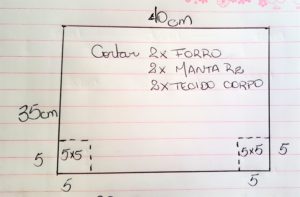 40cm
Cortar 2x FORRO
2x MANTA R2
2x TECIDO CORPO
35cm
5 5x5 5x5 5
5 5